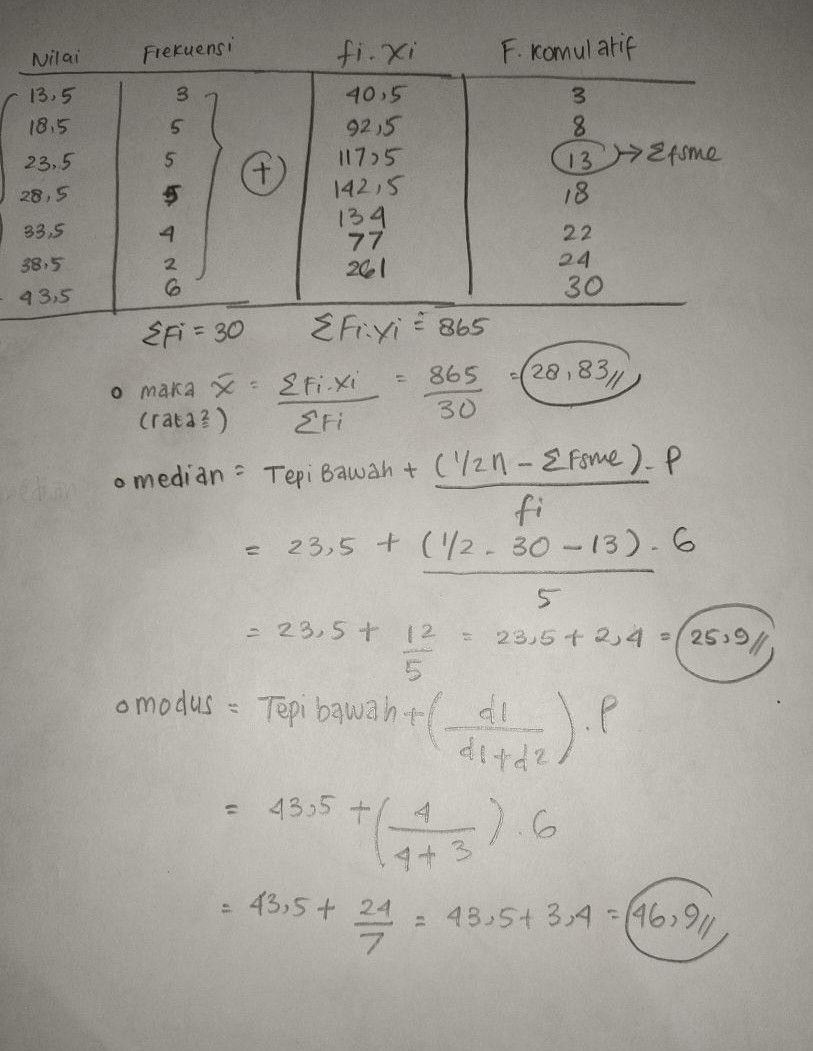 Nilai Frekuensi fi.xi F. Komulatif
13,5 3 40,5 3
18,5 5 92,5 8
23,5 5 117,5 13 → Σfsme
28,5 5 142,5 18
33,5 4 134 22
38,5 2 77 24
43,5 6 261 30
+
ΣFi = 30 ΣFi.yi = 865
o maka x̄ = ΣFi.xi = 865 = 28,83//
(rata²) ΣFi 30
o median = Tepi Bawah + (1/2n - ΣFsme). P
fi
= 23,5 + (1/2 . 30 - 13). 6
5
= 23,5 + 12 = 23,5 + 2,4 = 25,9//
5
o modus = Tepi bawah + ( d1 ) . P
d1+d2
= 43,5 + ( 4 ) . 6
4+3
= 43,5 + 24 = 43,5 + 3,4 = 46,9//
7